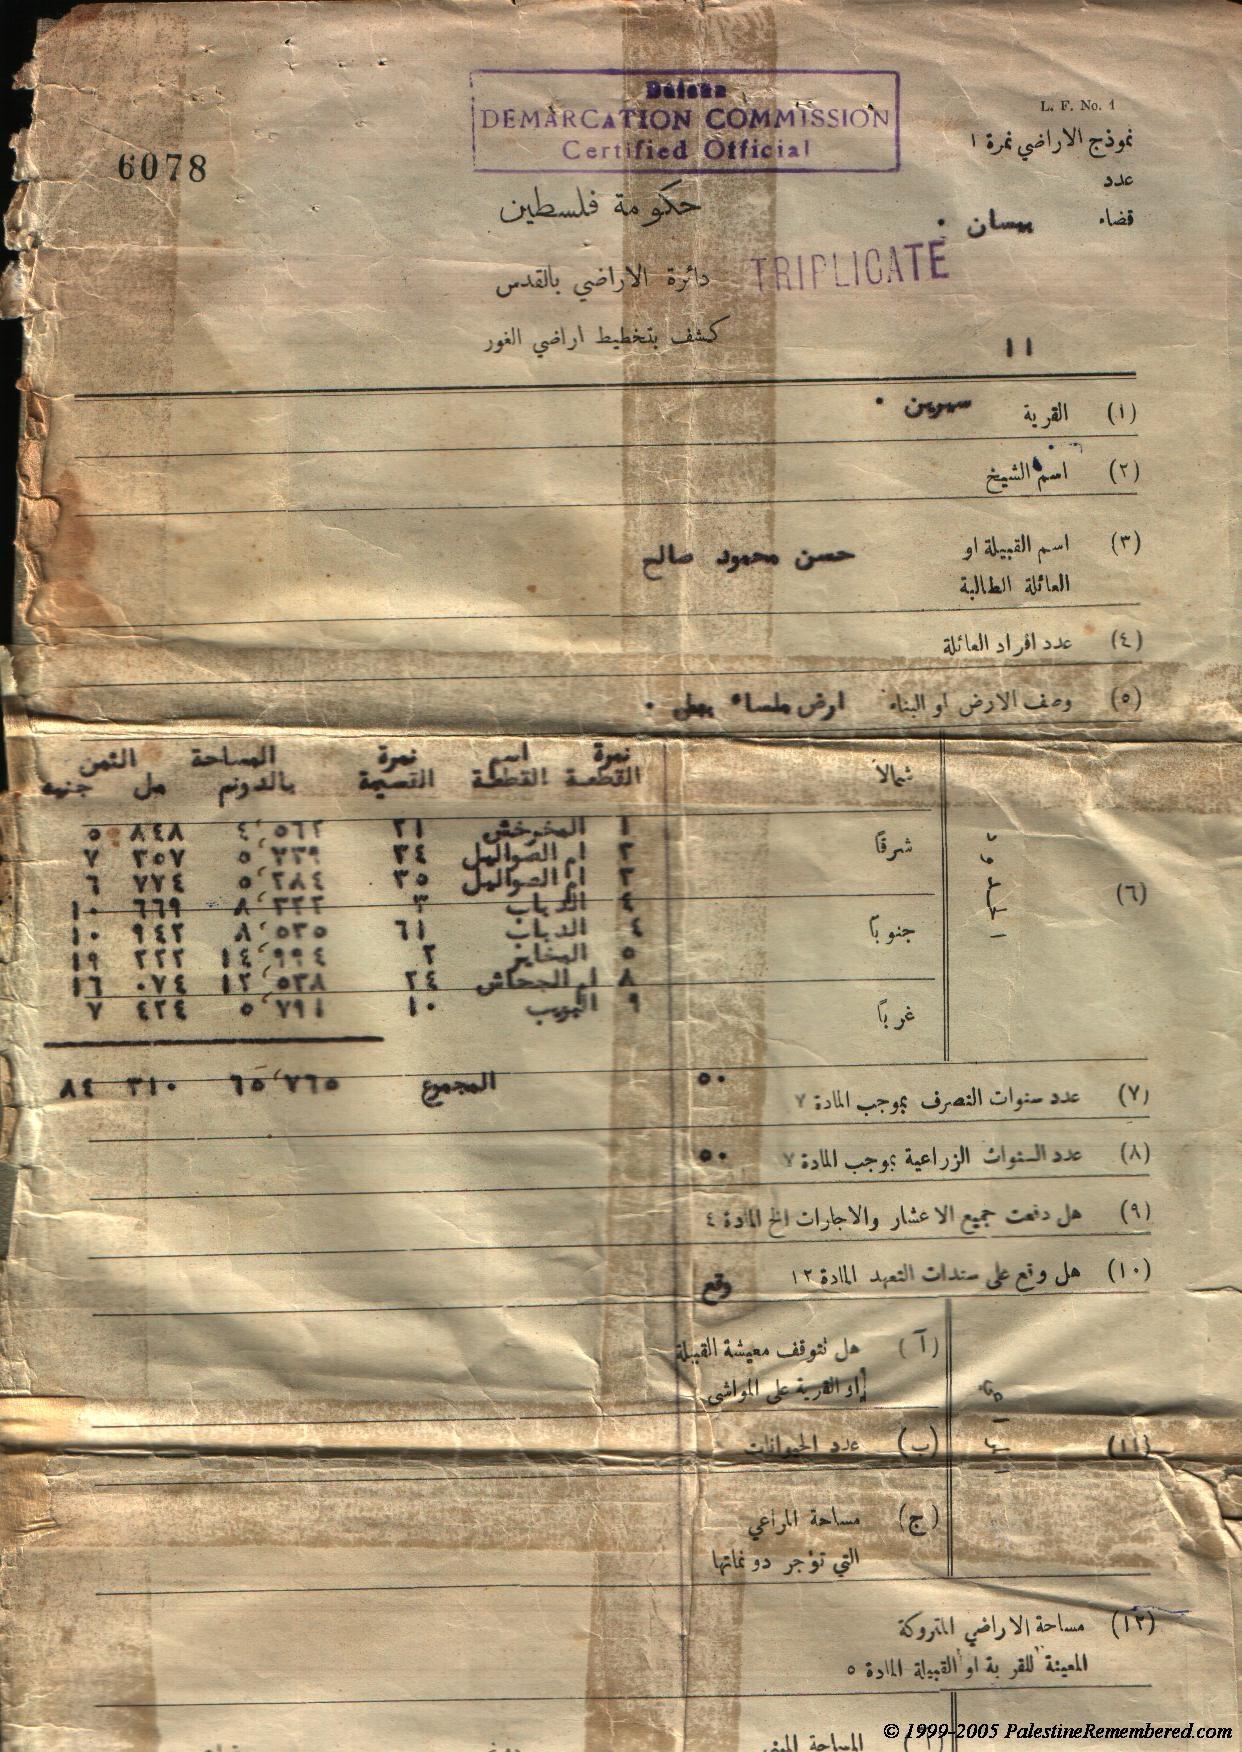 L. F. No. 1
نموذج الاراضي نمرة ١
DEMARCATION COMMISSION
Certified Official
6078
عدد
قضاء بيسان .
حكومة فلسطين
TRIPLICATE
دائرة الاراضي بالقدس
كشف بتخطيط اراضي الغور
١١
(١) القرية سيرين .
(٢) اسم الشيخ
(٣) اسم القبيلة او العائلة الطالبة حسن محمود صالح
(٤) عدد افراد العائلة
(٥) وصف الارض او البناء ارض ملساء بعلي .
(٦) الحدود
شمالاً
شرقاً
جنوباً
غرباً
نمرة القطعة اسم القطعة نمرة القسيمة المساحة بالدونم الثمن مل جنيه
١ المخرخش ٢١ ٤٬٥٦٢ ٨٤٨ ٥
٣ ام الصواليل ٣٤ ٥٬٧٣٩ ٣٥٧ ٧
٣ ام الصواليل ٣٥ ٥٬٢٨٤ ٧٧٤ ٦
٤ الدباب ٣ ٨٬٣٢٢ ٦٦٩ ١٠
٤ الدباب ٦١ ٨٬٥٣٥ ٩٤٢ ١٠
٥ المخابز ٢ ١٤٬٩٩٤ ٢٢٢ ١٩
٨ ام الجحاش ٢٤ ١٢٬٥٣٨ ٠٧٤ ١٦
٩ ١٠ ٥٬٧٩١ ٤٢٤ ٧
المجموع ٦٥٬٧٦٥ ٣١٠ ٨٤
(٧) عدد سنوات التصرف بموجب المادة ٧ ٥٠
(٨) عدد السنوات الزراعية بموجب المادة ٧ ٥٠
(٩) هل دفعت جميع الاعشار والاجارات الخ المادة ٤
(١٠) هل وقع على سندات التعهد المادة ١٢ وقع
(١١)
(آ) هل تتوقف معيشة القبيلة
او القرية على المواشي
(ب) عدد الحيوانات
(ج) مساحة المراعي
التي تؤجر دونماتها
(١٢) مساحة الاراضي المتروكة
المعينة للقرية او القبيلة المادة ٥
© 1999-2005 PalestineRemembered.com